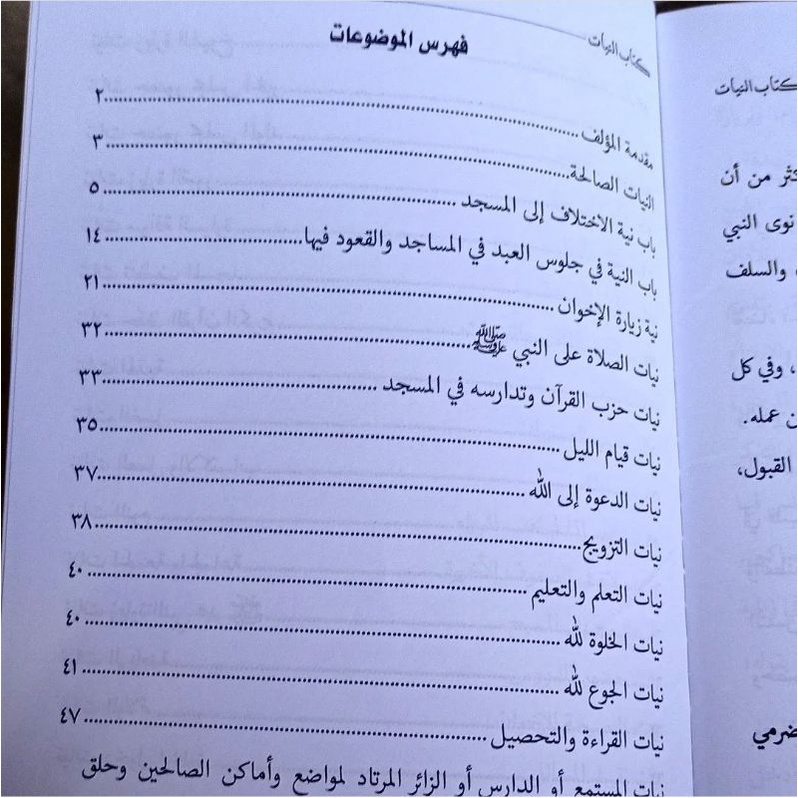 كتاب النيات
فهرس الموضوعات
مقدمة المؤلف ................ ٢
النيات الصالحة ................ ٣
باب نية الاختلاف إلى المسجد ................ ٥
باب النية في جلوس العبد في المساجد والقعود فيها ................ ١٤
نية زيارة الإخوان ................ ٢١
نيات الصلاة على النبي ﷺ ................ ٣٢
نيات حزب القرآن وتدارسه في المسجد ................ ٣٣
نيات قيام الليل ................ ٣٥
نيات الدعوة إلى الله ................ ٣٧
نيات التزويج ................ ٣٨
نيات التعلم والتعليم ................ ٤٠
نيات الخلوة لله ................ ٤٠
نيات الجوع لله ................ ٤١
نيات القراءة والتحصيل ................ ٤٧
نيات المستمع أو الدارس أو الزائر المرتاد لمواضع وأماكن الصالحين وحلق
كتاب النيات
كثر من أن
نوى النبي
والسلف
، وفي كل
عمله.
القبول،